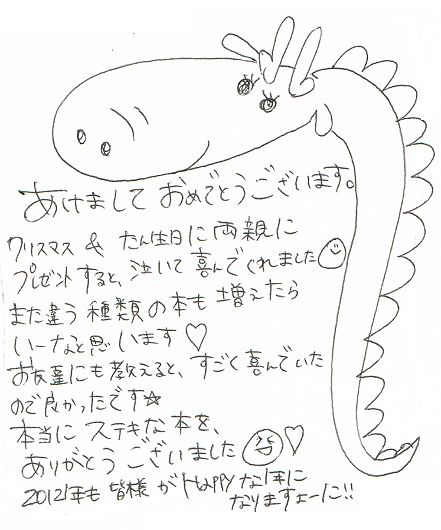 あけまして おめでとうございます。
クリスマス & たん生日に 両親に
プレゼントすると、泣いて喜んでくれました
また違う種類の本も 増えたら
いーなと思います♡
お友達にも教えると、すごく喜んでいた
ので良かったです☆
本当に ステキな本を、
ありがとうございました ♡
2012年も 皆様が Happyな1年に
なりますょーに!!